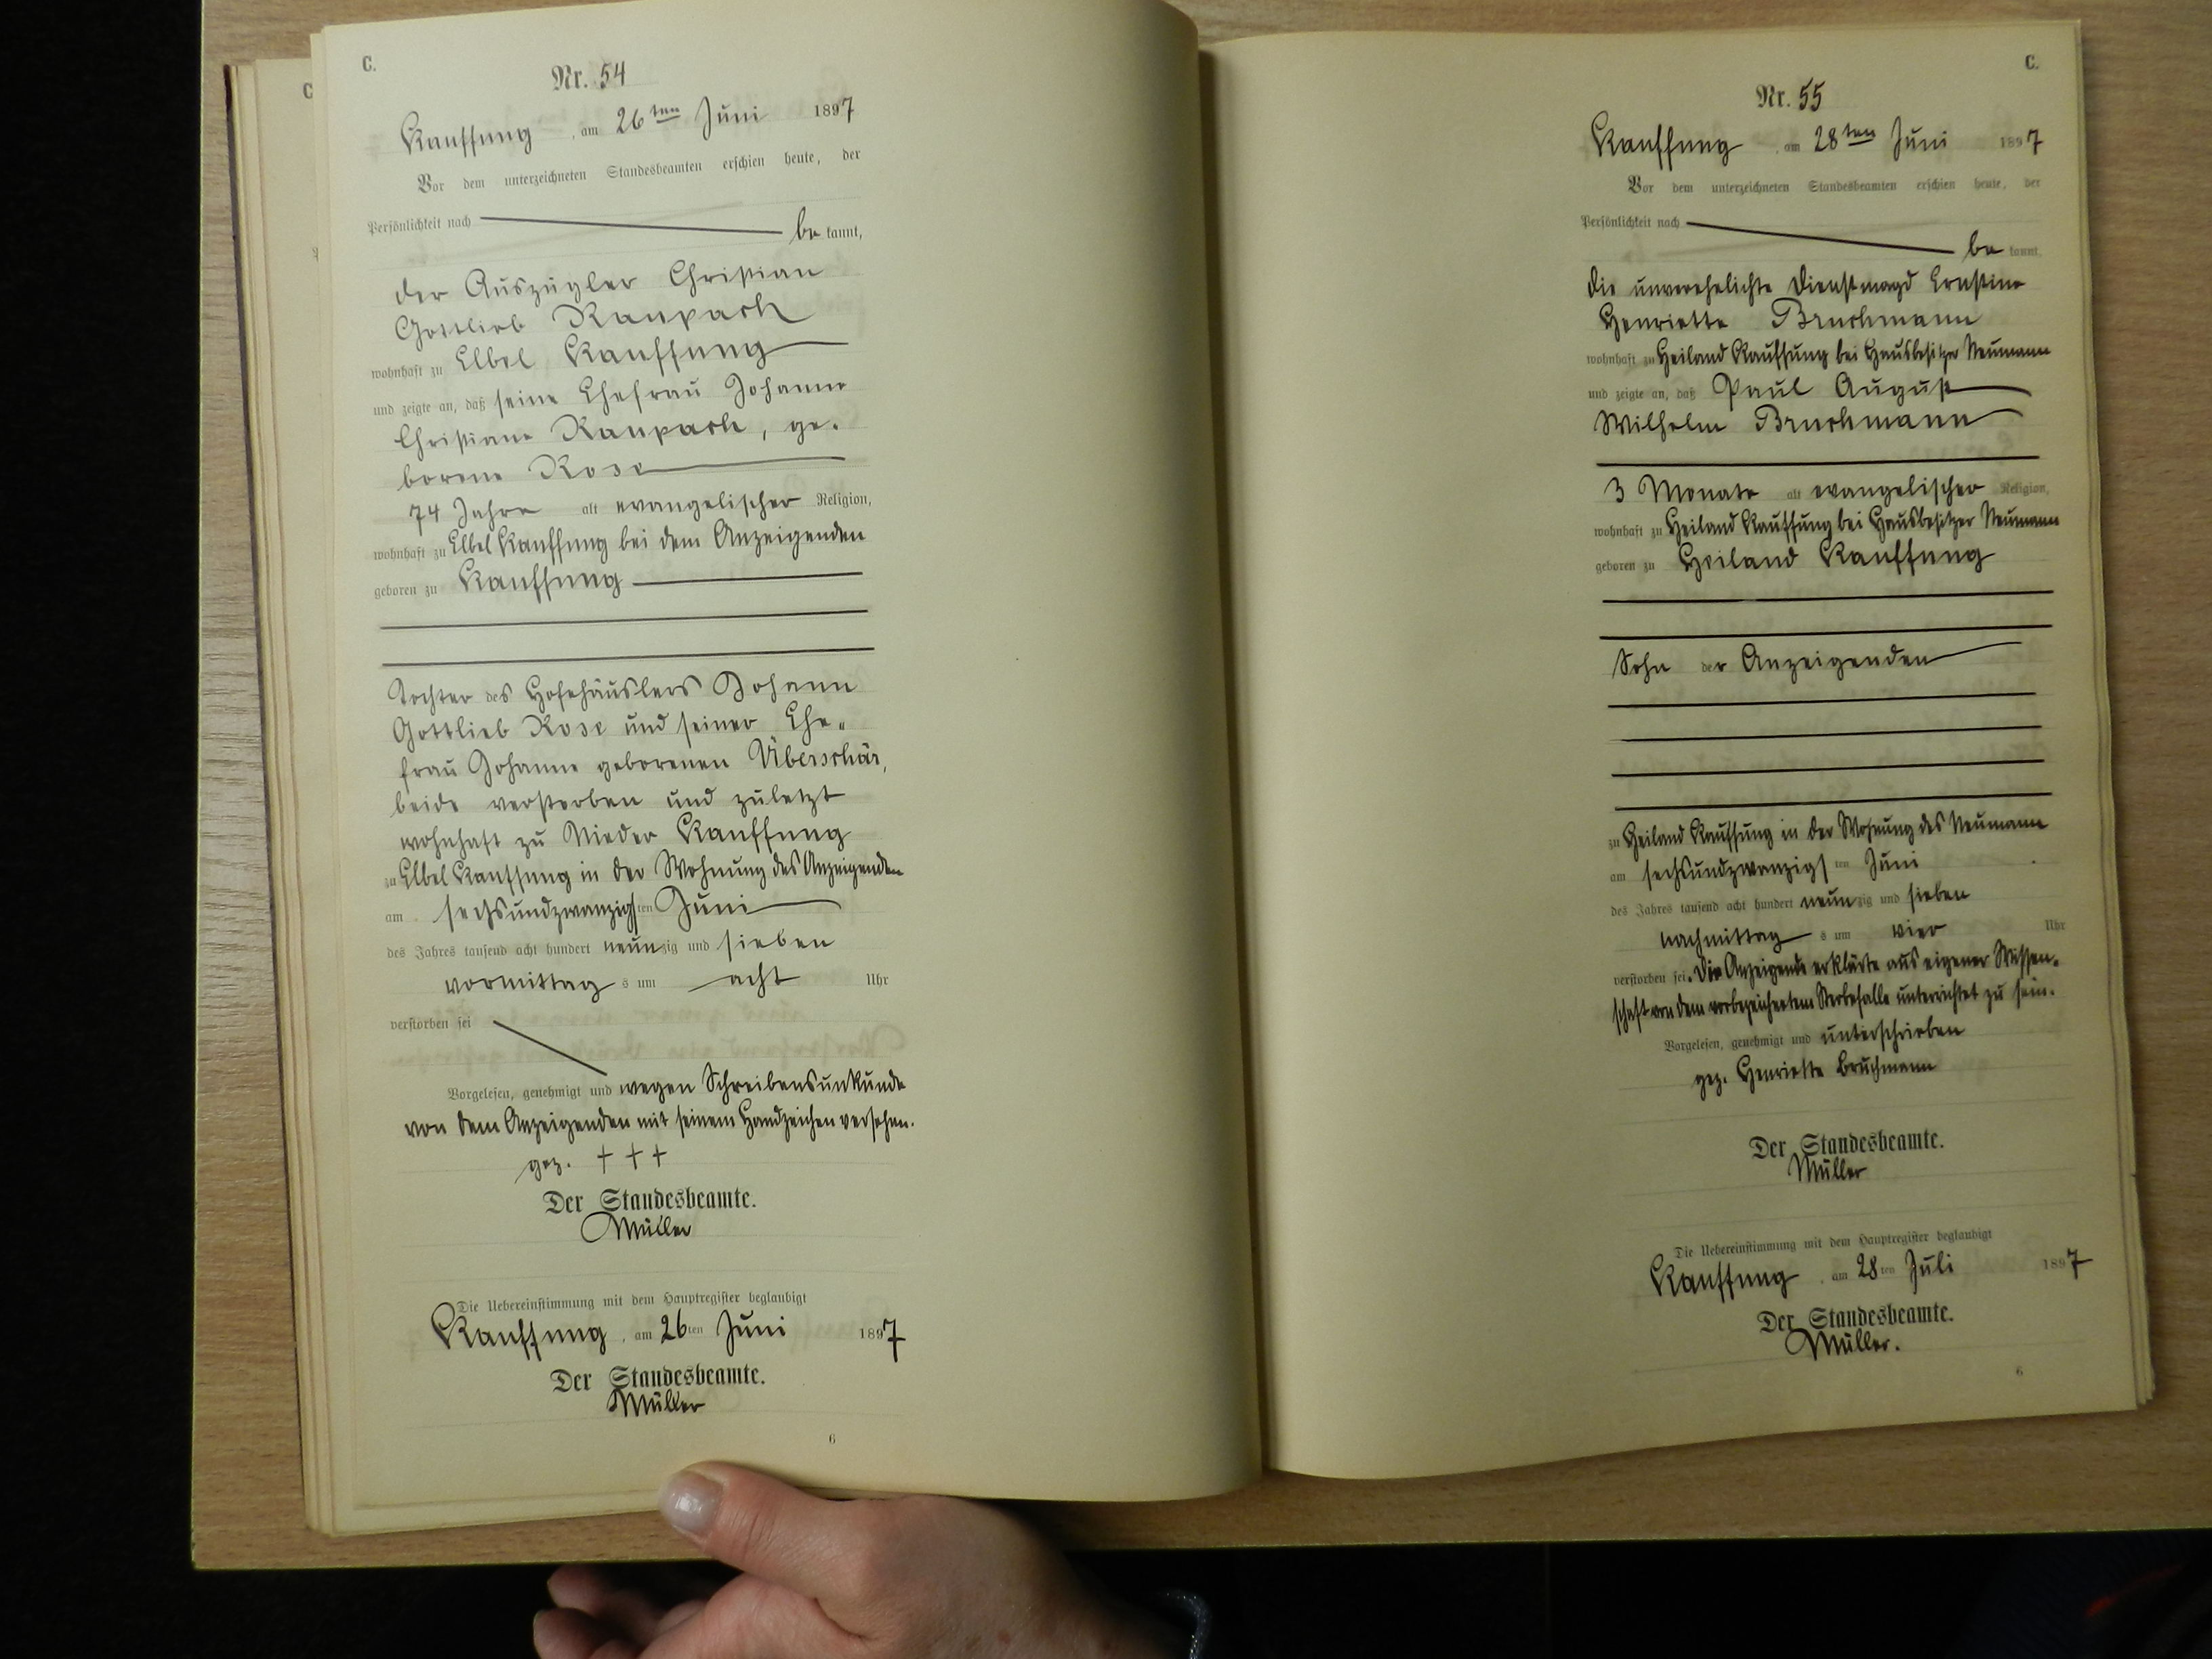 C.
Nr. 54
Kauffung, am 26ten Juni 1897
Vor dem unterzeichneten Standesbeamten erschien heute, der
Persönlichkeit nach
be kannt,
der Auszügler Christian
Gottlieb Raupach
wohnhaft zu Elbel Kauffung
und zeigte an, daß seine Ehefrau Johanne
Christiane Raupach, ge-
borene Rose
74 Jahre alt evangelischer Religion,
wohnhaft zu Elbel Kauffung bei dem Anzeigenden
geboren zu Kauffung
Tochter des Hofehäuslers Johann
Gottlieb Rose und seiner Ehe-
frau Johanne geborenen Überschär,
beide verstorben und zuletzt
wohnhaft zu Nieder Kauffung
zu Elbel Kauffung in der Wohnung des Anzeigenden
am sechsundzwanzigsten Juni
des Jahres tausend acht hundert neunzig und sieben
vormittags um acht Uhr
verstorben sei
Vorgelesen, genehmigt und wegen Schreibensunkunde
von dem Anzeigenden mit seinem Handzeichen versehen.
gez. † † †
Der Standesbeamte.
Müller
Die Uebereinstimmung mit dem Hauptregister beglaubigt
Kauffung, am 26ten Juni 1897
Der Standesbeamte.
Müller
6
C.
Nr. 55
Kauffung, am 28ten Juni 1897
Vor dem unterzeichneten Standesbeamten erschien heute, der
Persönlichkeit nach
be kannt,
die unverehelichte Dienstmagd Ernstine
Henriette Bruchmann
wohnhaft zu Heiland Kauffung bei Hausbesitzer Neumann
und zeigte an, daß Paul August
Wilhelm Bruchmann
3 Monate alt evangelischer Religion,
wohnhaft zu Heiland Kauffung bei Hausbesitzer Neumann
geboren zu Heiland Kauffung
Sohn der Anzeigenden
zu Heiland Kauffung in der Wohnung des Neumann
am sechsundzwanzigsten Juni
des Jahres tausend acht hundert neunzig und sieben
nachmittags um vier Uhr
verstorben sei. Die Anzeigende erklärte aus eigener Wissen-
schaft von dem vorbezeichneten Sterbefalle unterrichtet zu sein.
Vorgelesen, genehmigt und unterschrieben
gez. Henriette Bruchmann
Der Standesbeamte.
Müller
Die Uebereinstimmung mit dem Hauptregister beglaubigt
Kauffung, am 28ten Juli 1897
Der Standesbeamte.
Müller.
6